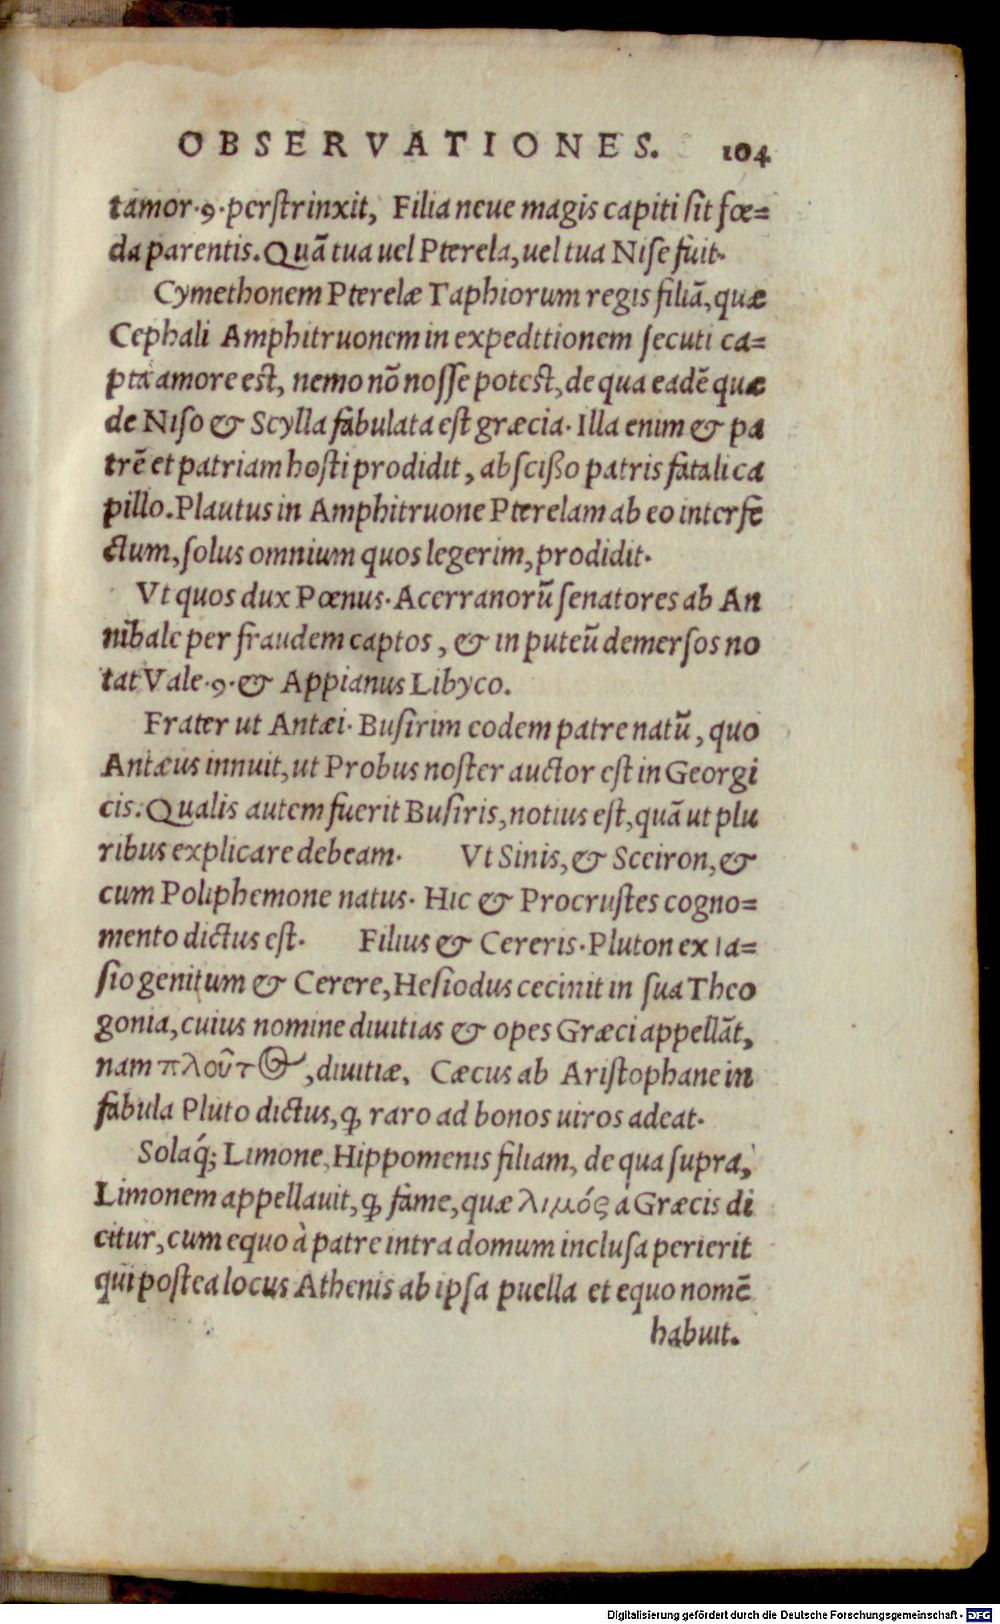 OBSERVATIONES. 104
tamor·9·perstrinxit, Filia neue magis capiti sit fœ=
da parentis. Quã tua uel Pterela, uel tua Nise fuit·
Cymethonem Pterelæ Taphiorum regis filiã, quæ
Cephali Amphitruonem in expedttionem secuti ca=
pta amore est, nemo nõ nosse potest, de qua eadẽ quæ
de Niso & Scylla fabulata est græcia· Illa enim & pa
trẽ et patriam hosti prodidit, abscißo patris fatali ca
pillo. Plautus in Amphitruone Pterelam ab eo interfe
ctum, solus omnium quos legerim, prodidit·
Vt quos dux Pœnus· Acerranorũ senatores ab An
nibale per fraudem captos, & in puteũ demersos no
tat Vale·9·& Appianus Libyco.
Frater ut Antæi· Busirim eodem patre natũ, quo
Antæus innuit, ut Probus noster auctor est in Georgi
cis: Qualis autem fuerit Busiris, notius est, quã ut plu
ribus explicare debeam· Vt Sinis, & Sceiron, &
cum Poliphemone natus· Hic & Procrustes cogno=
mento dictus est· Filius & Cereris· Pluton ex Ia=
sio genitum & Cerere, Hesiodus cecinit in sua Theo
gonia, cuius nomine diuitias & opes Græci appellãt,
nam πλοῦτ⊙, diuitiæ. Cæcus ab Aristophane in
fabula Pluto dictus, ꝙ raro ad bonos uiros adeat·
Solaq́; Limone, Hippomenis filiam, de qua supra,
Limonem appellauit, ꝙ fame, quæ λιμός à Græcis di
citur, cum equo à patre intra domum inclusa perierit
qui postea locus Athenis ab ipsa puella et equo nomẽ
habuit.
Digitalisierung gefördert durch die Deutsche Forschungsgemeinschaft - DFG